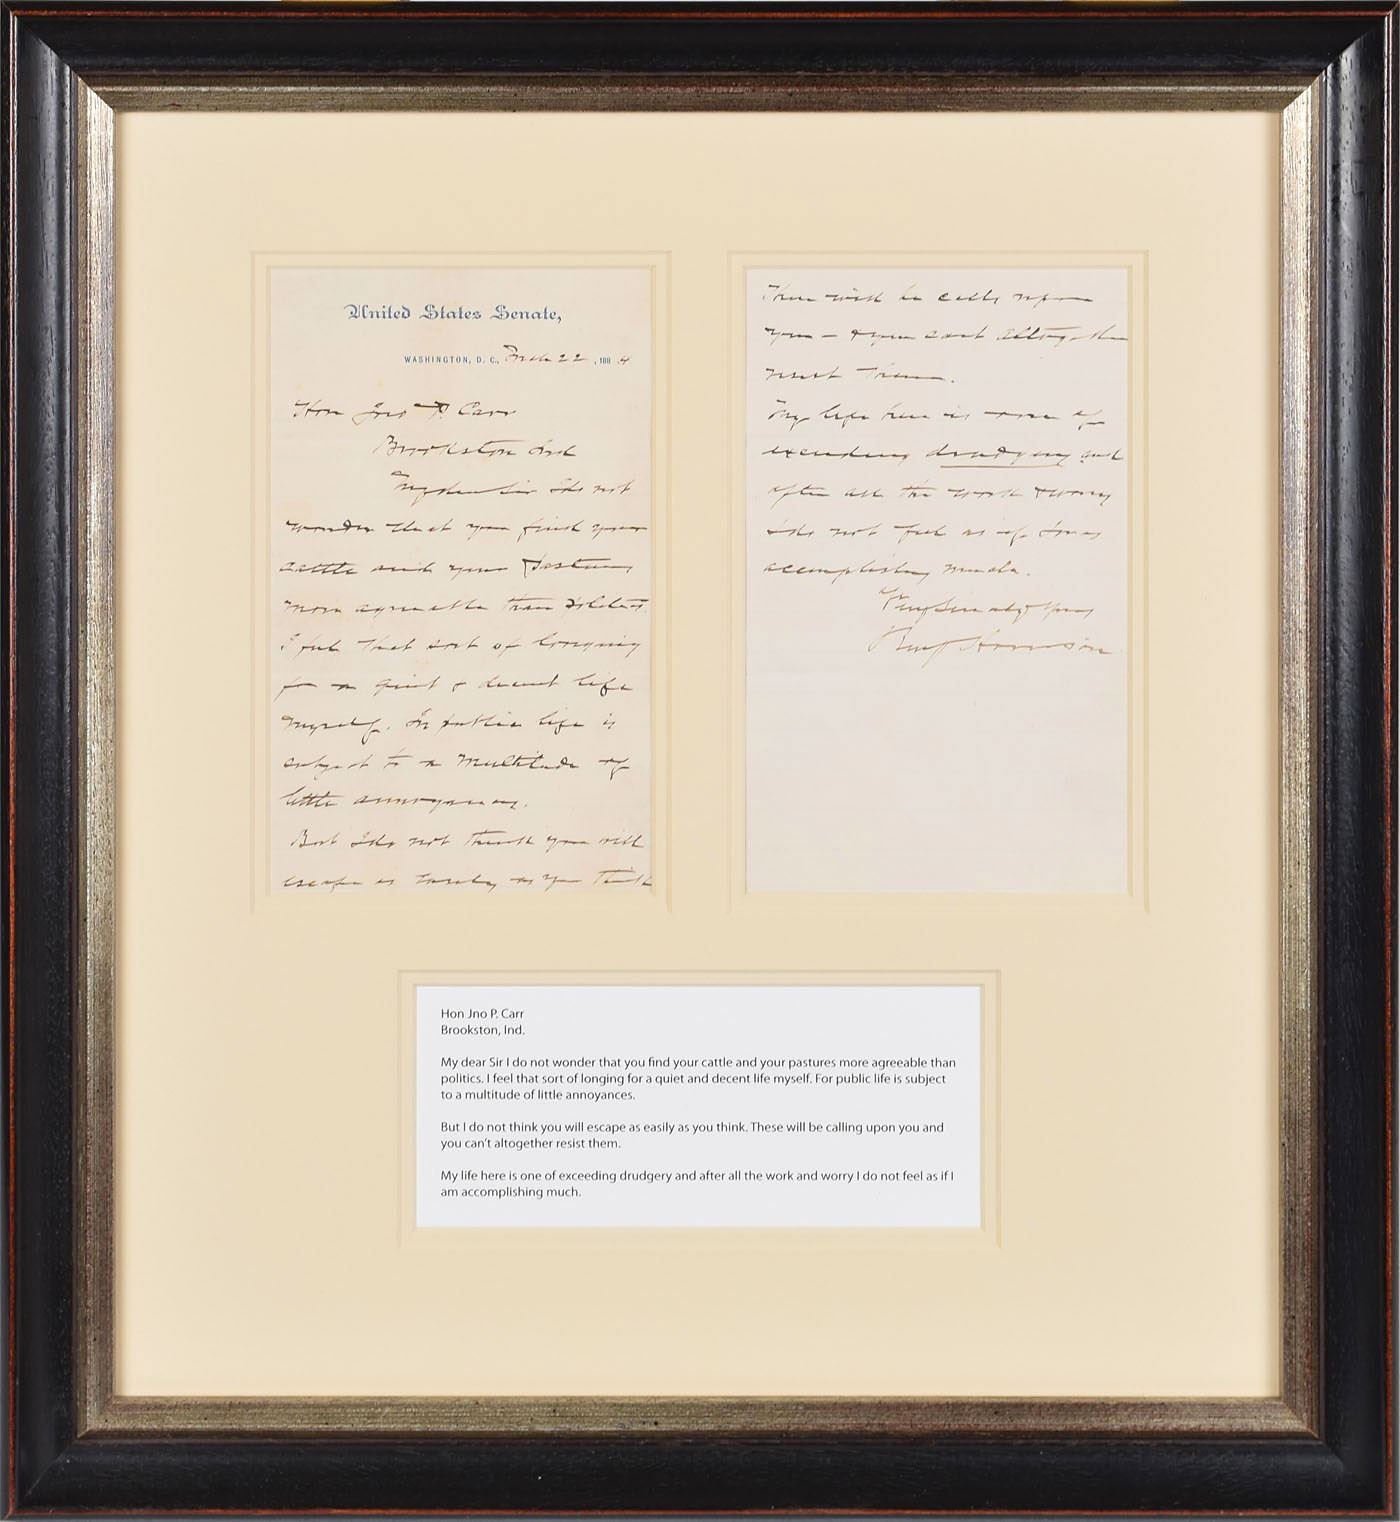 United States Senate,
WASHINGTON, D. C., 22, 1884
Hon Jno P. Carr
Brookston Ind
My dear Sir I do not
wonder that you find your
cattle and your pastures
more agreeable than politics.
I feel that sort of longing
for a quiet & decent life
myself. For public life is
subject to a multitude of
little annoyances.
But I do not think you will
escape as easily as you think
There will be calls upon
you - & you cant altogether
resist them.
My life here is one of
exceeding drudgery and
after all the work & worry
I do not feel as if I was
accomplishing much.
Very sincerely yours
Benj Harrison
Hon Jno P. Carr
Brookston, Ind.
My dear Sir I do not wonder that you find your cattle and your pastures more agreeable than
politics. I feel that sort of longing for a quiet and decent life myself. For public life is subject
to a multitude of little annoyances.
But I do not think you will escape as easily as you think. These will be calling upon you and
you can't altogether resist them.
My life here is one of exceeding drudgery and after all the work and worry I do not feel as if I
am accomplishing much.